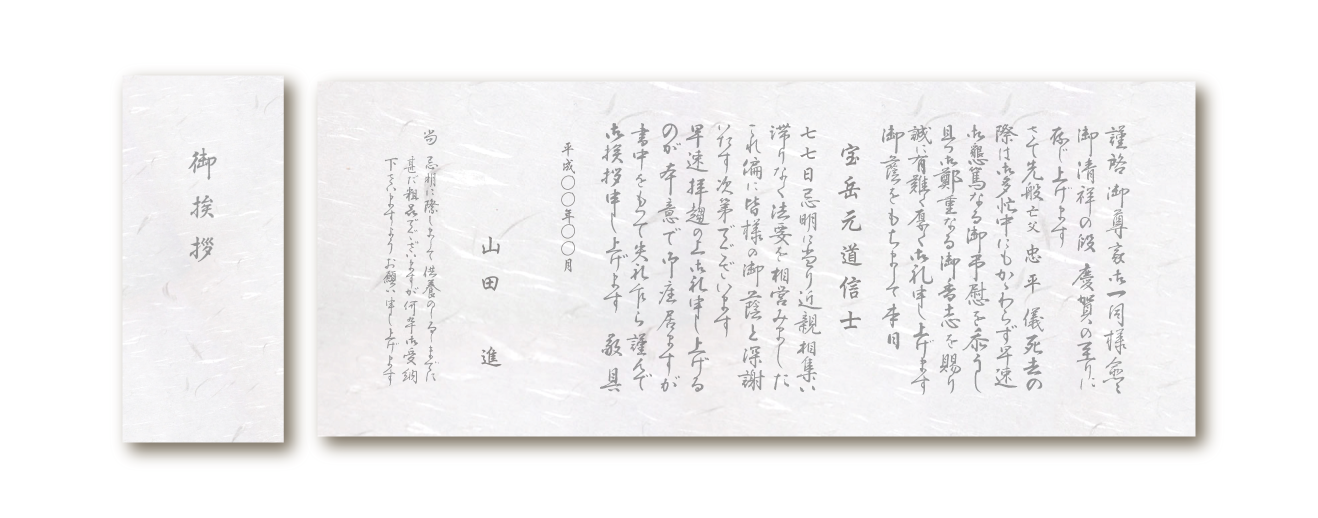 御挨拶
謹啓 御尊家御一同様愈々
御清祥の段 慶賀の至りに
存じ上げます
さて先般亡父 忠平 儀死去の
際は御多忙中にもかゝわらず早速
御懇篤なる御弔慰を忝うし
且つ御鄭重なる御香志を賜り
誠に有難く厚く御礼申し上げます
御蔭をもちまして本日
宝岳元道信士
七七日忌明に当り近親相集い
滞りなく法要を相営みました
これ偏に皆様の御蔭と深謝
いたす次第でございます
早速拝趨の上御礼申し上げる
のが本意で御座居ますが
書中をもって失礼乍ら謹んで
御挨拶申し上げます 敬具
平成〇〇年〇〇月
山田 進
当 忌明に際しまして供養のしるしまでに
甚だ粗品でございますが何卒御受納
下さいますようお願い申し上げます